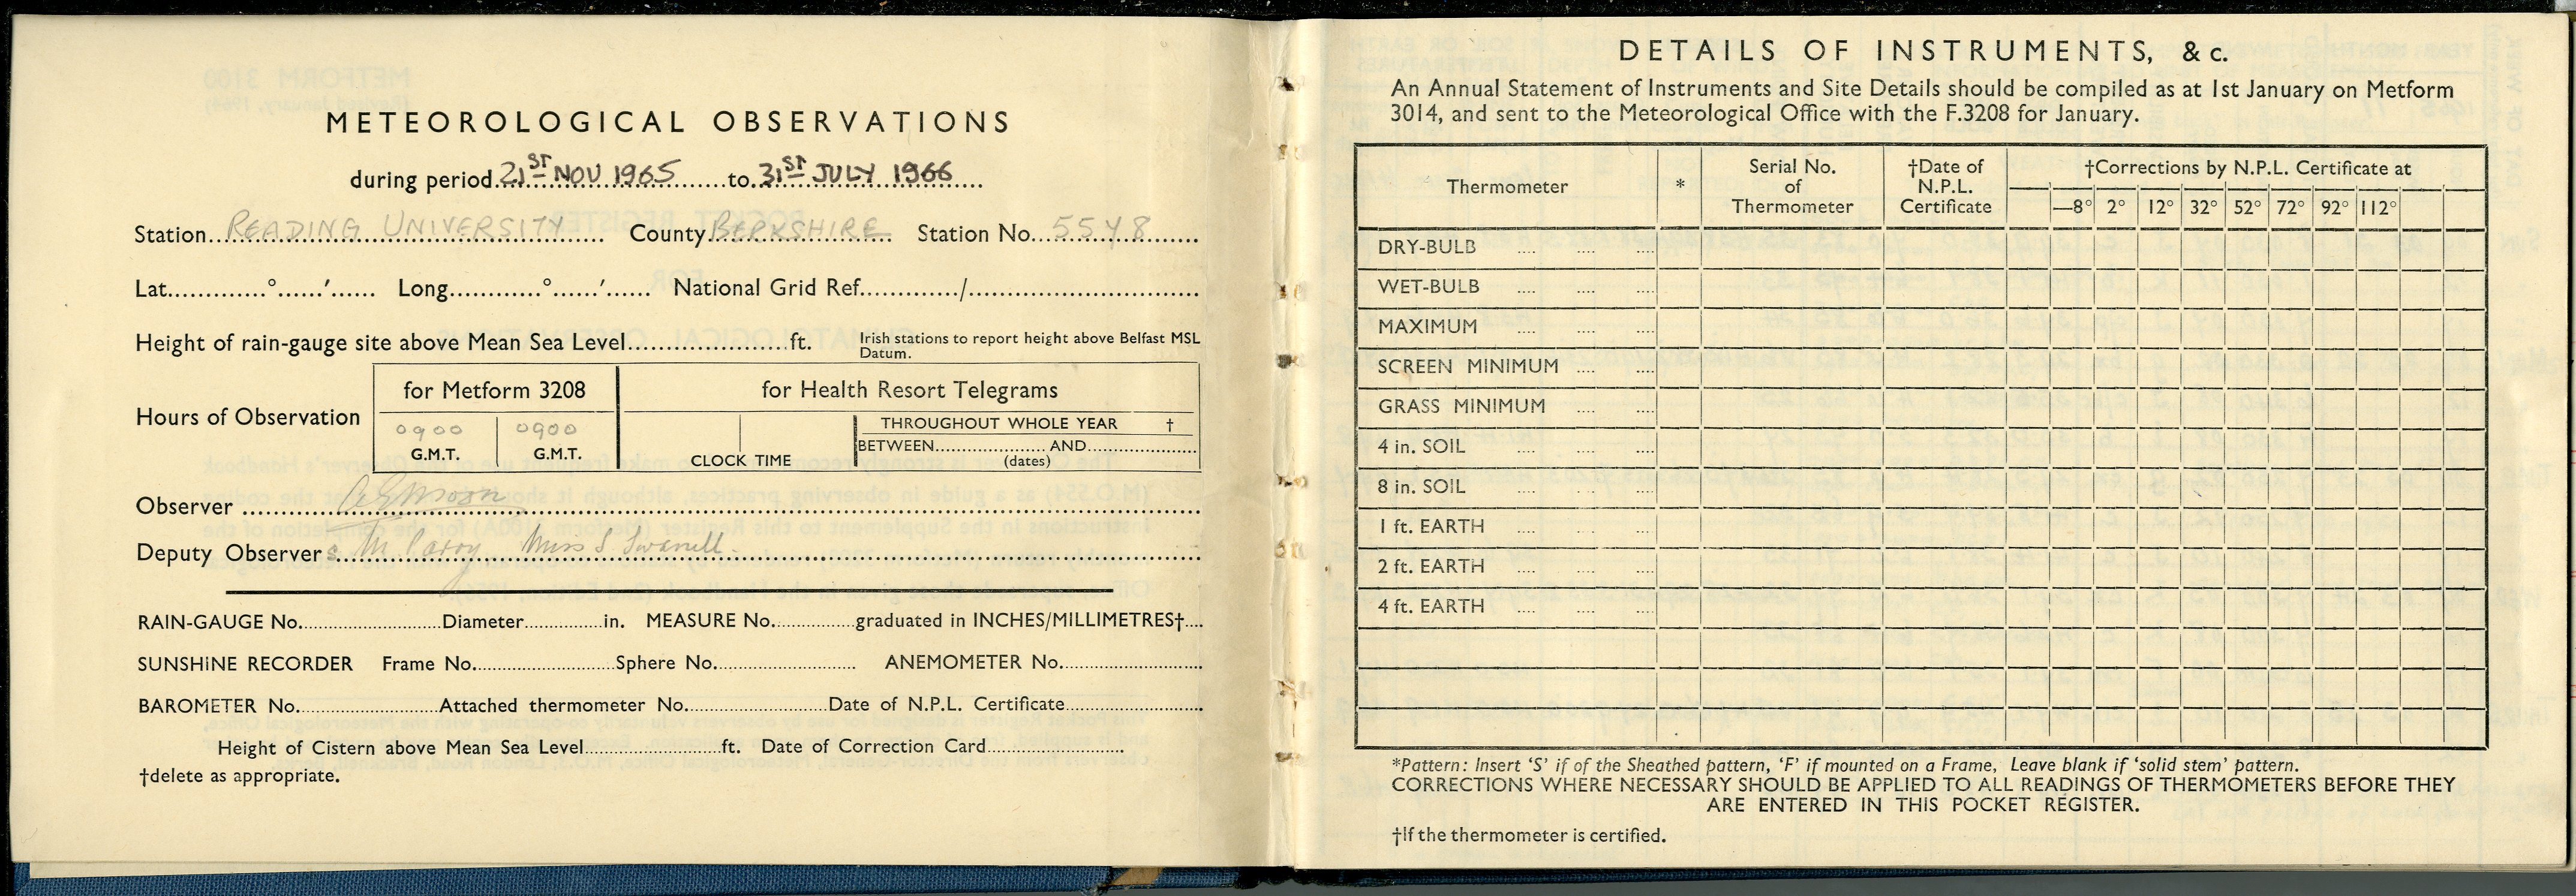 METEOROLOGICAL OBSERVATIONS
during period 21ST NOV 1965 to 31ST JULY 1966
Station READING UNIVERSITY County BERKSHIRE Station No. 5548
Lat.............°......′...... Long............°......′...... National Grid Ref............./..............................
Height of rain-gauge site above Mean Sea Level......................ft. Irish stations to report height above Belfast MSL
Datum.
Hours of Observation
for Metform 3208
0900 0900
G.M.T. G.M.T.
for Health Resort Telegrams
CLOCK TIME
THROUGHOUT WHOLE YEAR †
BETWEEN.................... AND....................
(dates)
Observer
Deputy Observers M Parry Miss S Swanell.
RAIN-GAUGE No..........................Diameter..............in. MEASURE No...............graduated in INCHES/MILLIMETRES†....
SUNSHINE RECORDER Frame No..........................Sphere No.......................... ANEMOMETER No..........................
BAROMETER No..........................Attached thermometer No..........................Date of N.P.L. Certificate..........................
Height of Cistern above Mean Sea Level..........................ft. Date of Correction Card..........................
†delete as appropriate.
DETAILS OF INSTRUMENTS, &c.
An Annual Statement of Instruments and Site Details should be compiled as at 1st January on Metform
3014, and sent to the Meteorological Office with the F.3208 for January.
Thermometer * Serial No. of Thermometer †Date of N.P.L. Certificate †Corrections by N.P.L. Certificate at
—8° 2° 12° 32° 52° 72° 92° 112°
DRY-BULB .... .... ....
WET-BULB .... .... ....
MAXIMUM .... .... ....
SCREEN MINIMUM .... ....
GRASS MINIMUM .... ....
4 in. SOIL .... .... ....
8 in. SOIL .... .... ....
1 ft. EARTH .... .... ....
2 ft. EARTH .... .... ....
4 ft. EARTH .... .... ....
*Pattern: Insert ‘S’ if of the Sheathed pattern, ‘F’ if mounted on a Frame, Leave blank if ‘solid stem’ pattern.
CORRECTIONS WHERE NECESSARY SHOULD BE APPLIED TO ALL READINGS OF THERMOMETERS BEFORE THEY
ARE ENTERED IN THIS POCKET REGISTER.
†If the thermometer is certified.